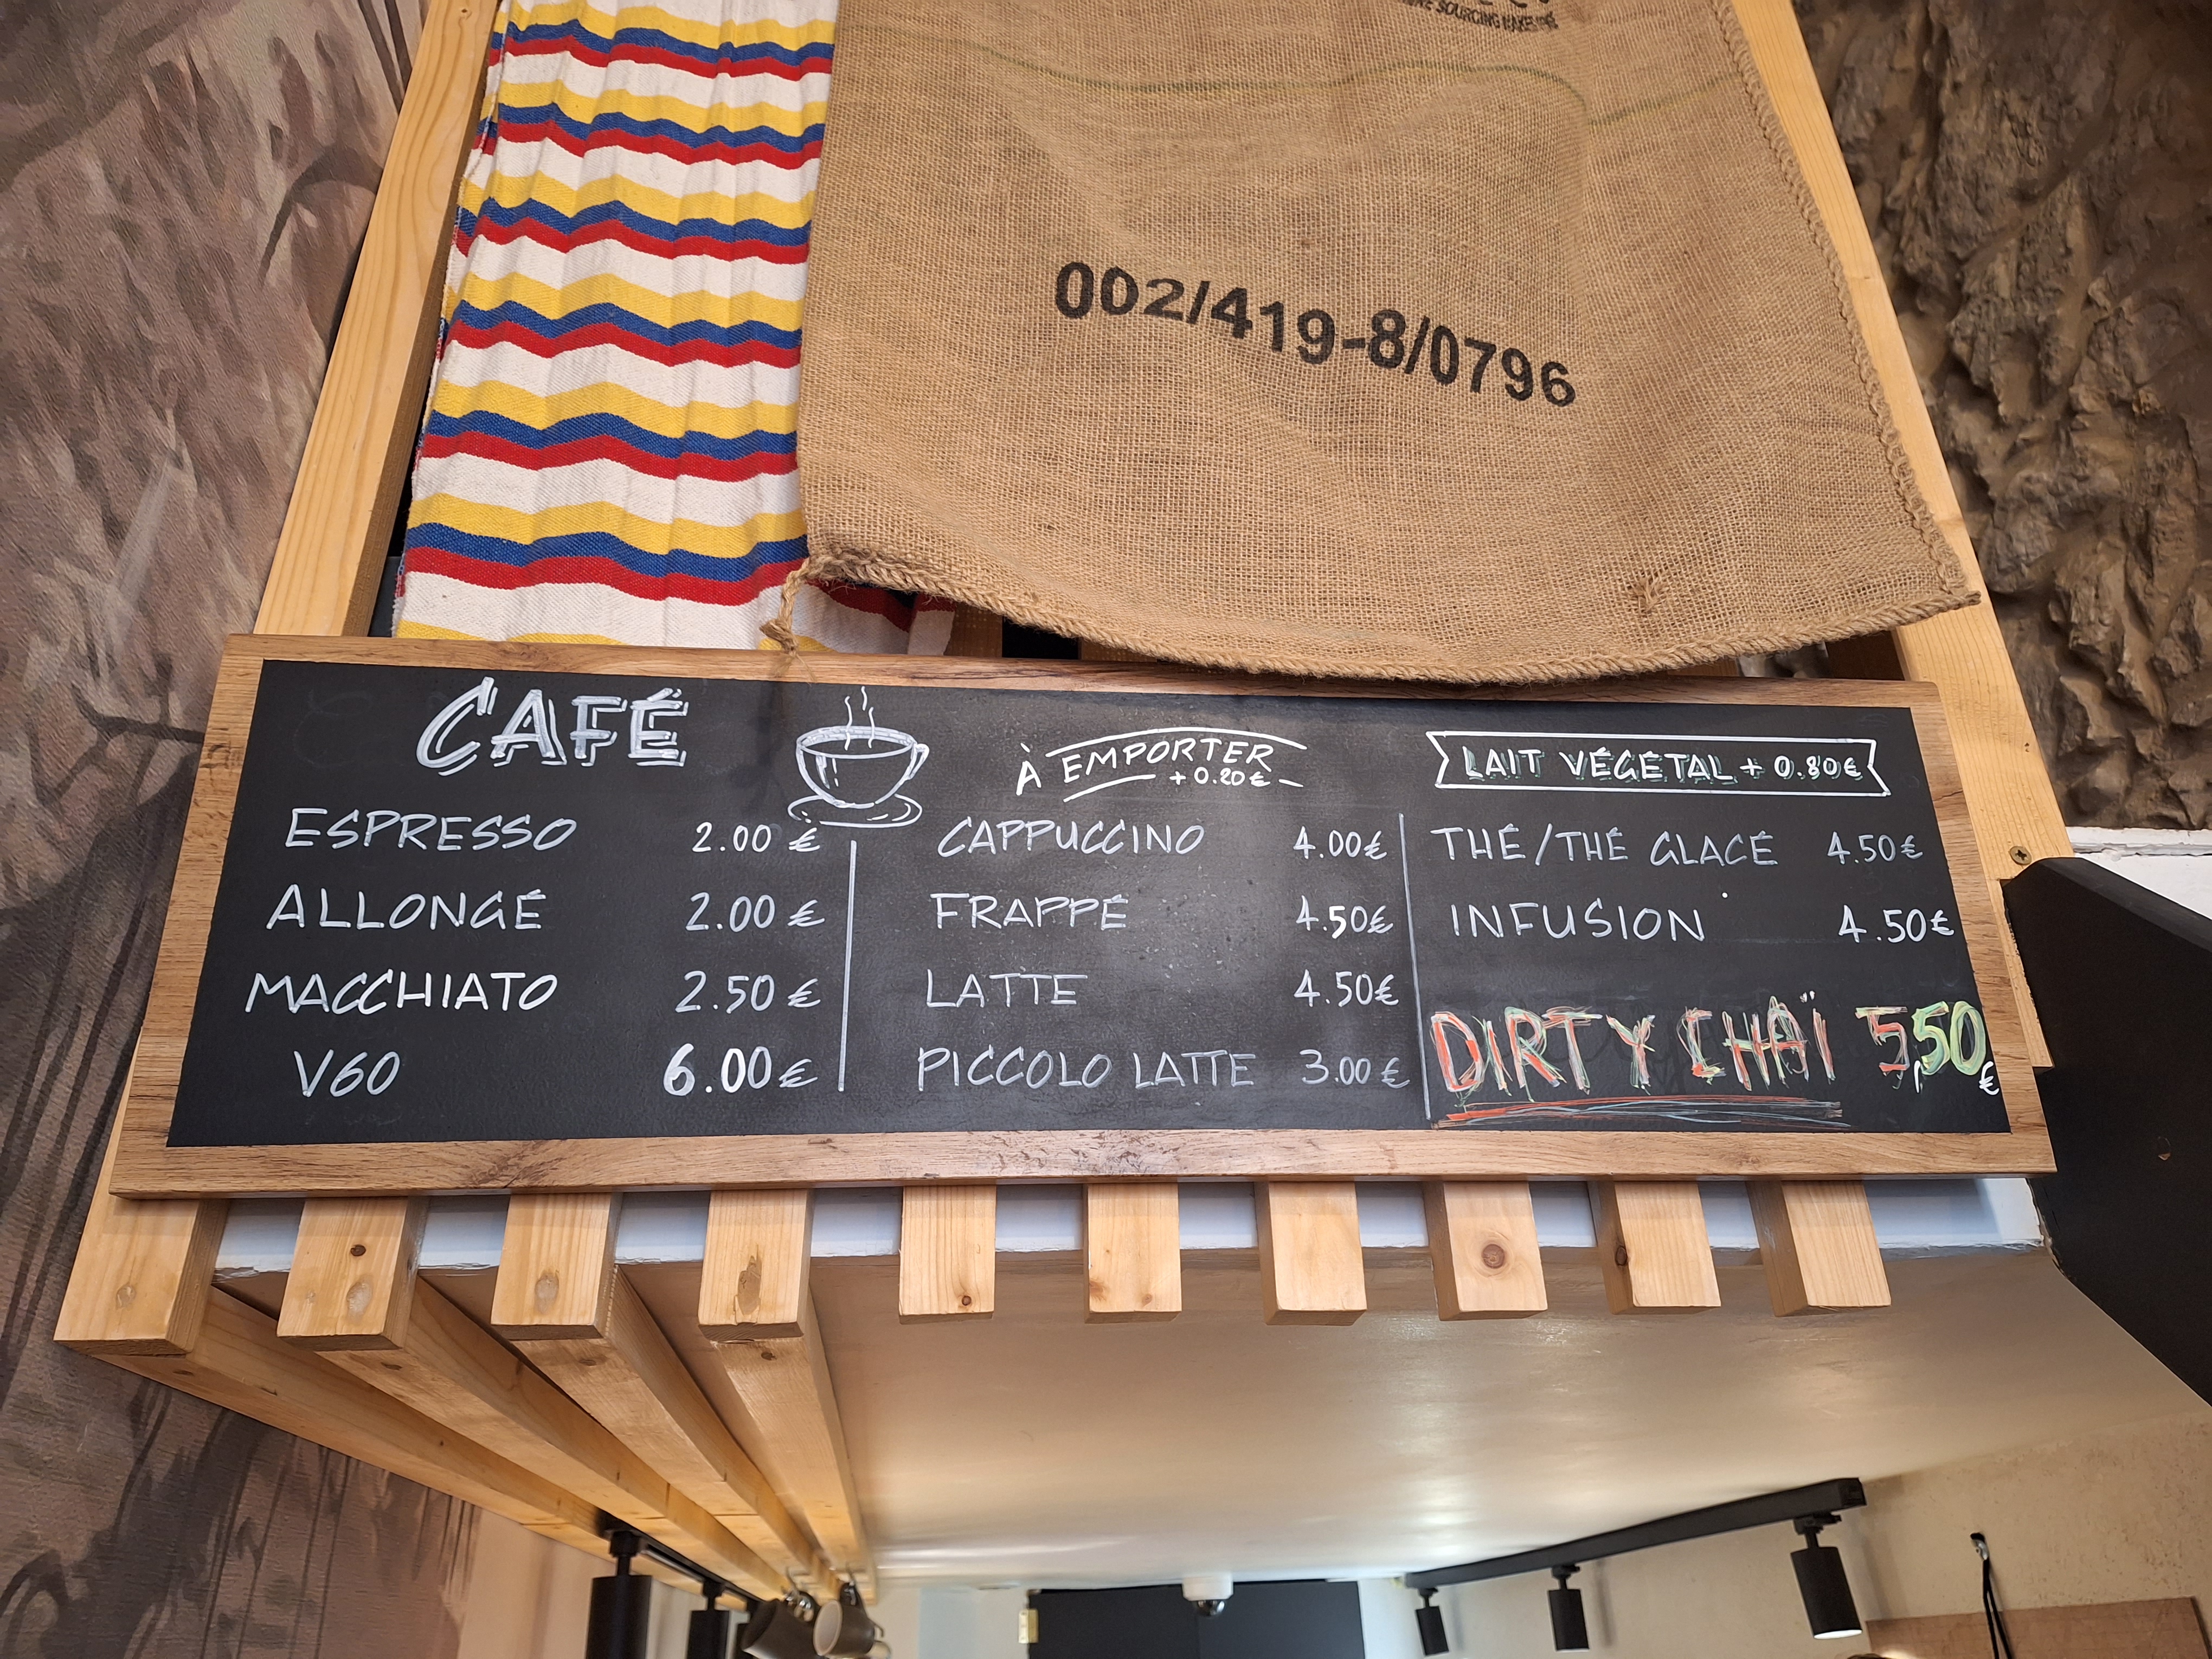 SOURCING
002/419-8/0796
CAFÉ
ESPRESSO 2.00 €
ALLONGÉ 2.00 €
MACCHIATO 2.50 €
V60 6.00 €
À EMPORTER
+ 0.20 €
CAPPUCCINO 4.00€
FRAPPÉ 4.50€
LATTE 4.50€
PICCOLO LATTE 3.00 €
LAIT VÉGÉTAL + 0.80€
THÉ/THÉ GLACÉ 4.50€
INFUSION 4.50€
DIRTY CHAÏ 5,50 €